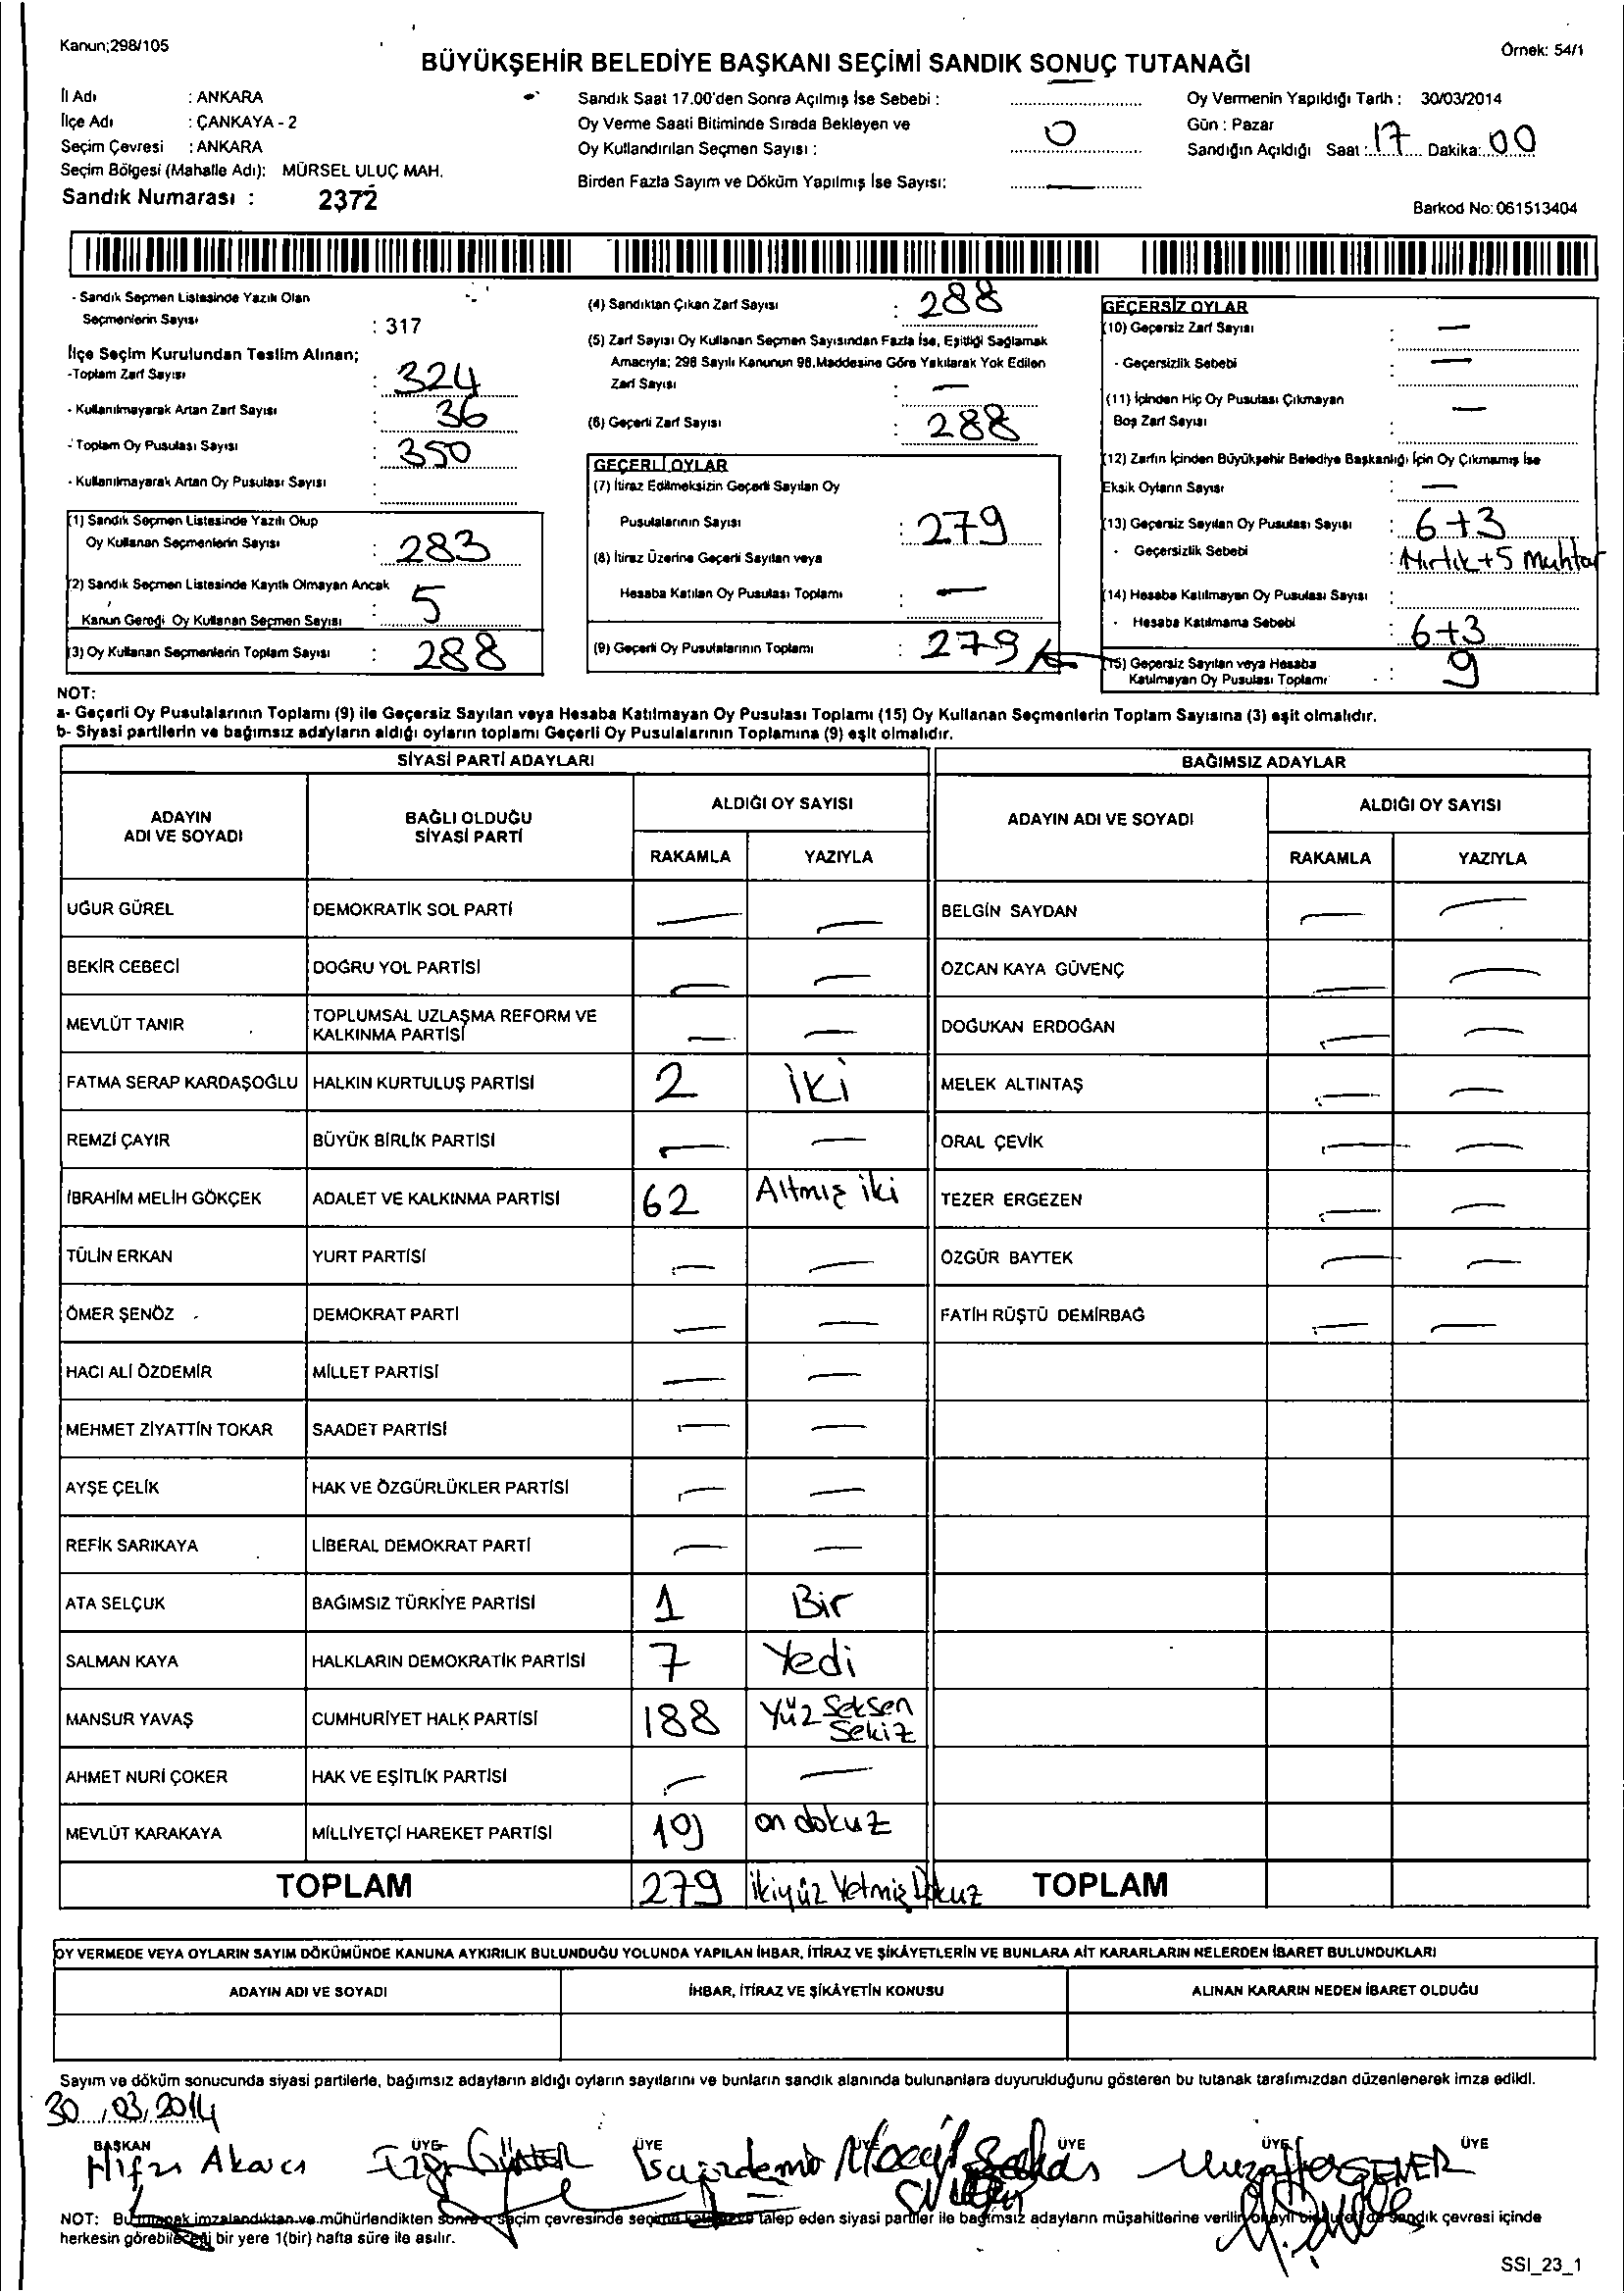 Kanun;298/105
Örnek: 54/1
BÜYÜKŞEHİR BELEDİYE BAŞKANI SEÇİMİ SANDIK SONUÇ TUTANAĞI
İl Adı : ANKARA
İlçe Adı : ÇANKAYA - 2
Seçim Çevresi : ANKARA
Seçim Bölgesi (Mahalle Adı): MÜRSEL ULUÇ MAH.
Sandık Numarası : 2372
Sandık Saat 17.00'den Sonra Açılmış İse Sebebi :
Oy Verme Saati Bitiminde Sırada Bekleyen ve
Oy Kullandırılan Seçmen Sayısı : 0
Birden Fazla Sayım ve Döküm Yapılmış İse Sayısı: —
Oy Vermenin Yapıldığı Tarih : 30/03/2014
Gün : Pazar
Sandığın Açıldığı Saat : 17 Dakika: 00
Barkod No: 061513404
- Sandık Seçmen Listesinde Yazılı Olan
Seçmenlerin Sayısı : 317
İlçe Seçim Kurulundan Teslim Alınan;
-Toplam Zarf Sayısı : 324
- Kullanılmayarak Artan Zarf Sayısı : 36
- Toplam Oy Pusulası Sayısı : 350
- Kullanılmayarak Artan Oy Pusulası Sayısı :
(1) Sandık Seçmen Listesinde Yazılı Olup
Oy Kullanan Seçmenlerin Sayısı : 283
(2) Sandık Seçmen Listesinde Kayıtlı Olmayan Ancak
Kanun Gereği Oy Kullanan Seçmen Sayısı : 5
(3) Oy Kullanan Seçmenlerin Toplam Sayısı : 288
(4) Sandıktan Çıkan Zarf Sayısı : 288
(5) Zarf Sayısı Oy Kullanan Seçmen Sayısından Fazla İse, Eşitliği Sağlamak
Amacıyla; 298 Sayılı Kanunun 98.Maddesine Göre Yakılarak Yok Edilen
Zarf Sayısı : —
(6) Geçerli Zarf Sayısı : 288
GEÇERLİ OYLAR
(7) İtiraz Edilmeksizin Geçerli Sayılan Oy
Pusulalarının Sayısı : 279
(8) İtiraz Üzerine Geçerli Sayılan veya
Hesaba Katılan Oy Pusulası Toplamı : —
(9) Geçerli Oy Pusulalarının Toplamı : 279
GEÇERSİZ OYLAR
(10) Geçersiz Zarf Sayısı : —
- Geçersizlik Sebebi : —
(11) İçinden Hiç Oy Pusulası Çıkmayan
Boş Zarf Sayısı : —
(12) Zarfın İçinden Büyükşehir Belediye Başkanlığı İçin Oy Çıkmamış İse
Eksik Oyların Sayısı : —
(13) Geçersiz Sayılan Oy Pusulası Sayısı : 6+3
- Geçersizlik Sebebi : +5 Muhtar
(14) Hesaba Katılmayan Oy Pusulası Sayısı :
- Hesaba Katılmama Sebebi : 6+3
(15) Geçersiz Sayılan veya Hesaba
Katılmayan Oy Pusulası Toplamı : 9
NOT:
a- Geçerli Oy Pusulalarının Toplamı (9) ile Geçersiz Sayılan veya Hesaba Katılmayan Oy Pusulası Toplamı (15) Oy Kullanan Seçmenlerin Toplam Sayısına (3) eşit olmalıdır.
b- Siyasi partilerin ve bağımsız adayların aldığı oyların toplamı Geçerli Oy Pusulalarının Toplamına (9) eşit olmalıdır.
SİYASİ PARTİ ADAYLARI
ADAYIN ADI VE SOYADI
BAĞLI OLDUĞU SİYASİ PARTİ
ALDIĞI OY SAYISI
RAKAMLA YAZIYLA
UĞUR GÜREL DEMOKRATİK SOL PARTİ — —
BEKİR CEBECİ DOĞRU YOL PARTİSİ — —
MEVLÜT TANIR TOPLUMSAL UZLAŞMA REFORM VE
KALKINMA PARTİSİ — —
FATMA SERAP KARDAŞOĞLU HALKIN KURTULUŞ PARTİSİ 2 iki
REMZİ ÇAYIR BÜYÜK BİRLİK PARTİSİ — —
İBRAHİM MELİH GÖKÇEK ADALET VE KALKINMA PARTİSİ 62 Altmış iki
TÜLİN ERKAN YURT PARTİSİ — —
ÖMER ŞENÖZ DEMOKRAT PARTİ — —
HACI ALİ ÖZDEMİR MİLLET PARTİSİ — —
MEHMET ZİYATTİN TOKAR SAADET PARTİSİ — —
AYŞE ÇELİK HAK VE ÖZGÜRLÜKLER PARTİSİ — —
REFİK SARIKAYA LİBERAL DEMOKRAT PARTİ — —
ATA SELÇUK BAĞIMSIZ TÜRKİYE PARTİSİ 1 Bir
SALMAN KAYA HALKLARIN DEMOKRATİK PARTİSİ 7 Yedi
MANSUR YAVAŞ CUMHURİYET HALK PARTİSİ 188 Yüz Seksen
Sekiz
AHMET NURİ ÇOKER HAK VE EŞİTLİK PARTİSİ — —
MEVLÜT KARAKAYA MİLLİYETÇİ HAREKET PARTİSİ 19 on dokuz
TOPLAM 279 ikiyüz Yetmiş Dokuz
BAĞIMSIZ ADAYLAR
ADAYIN ADI VE SOYADI
ALDIĞI OY SAYISI
RAKAMLA YAZIYLA
BELGİN SAYDAN — —
ÖZCAN KAYA GÜVENÇ — —
DOĞUKAN ERDOĞAN — —
MELEK ALTINTAŞ — —
ORAL ÇEVİK — —
TEZER ERGEZEN — —
ÖZGÜR BAYTEK — —
FATİH RÜŞTÜ DEMİRBAĞ — —
TOPLAM
OY VERMEDE VEYA OYLARIN SAYIM DÖKÜMÜNDE KANUNA AYKIRILIK BULUNDUĞU YOLUNDA YAPILAN İHBAR, İTİRAZ VE ŞİKÂYETLERİN VE BUNLARA AİT KARARLARIN NELERDEN İBARET BULUNDUKLARI
ADAYIN ADI VE SOYADI İHBAR, İTİRAZ VE ŞİKÂYETİN KONUSU ALINAN KARARIN NEDEN İBARET OLDUĞU
Sayım ve döküm sonucunda siyasi partilerle, bağımsız adayların aldığı oyların sayılarını ve bunların sandık alanında bulunanlara duyurulduğunu gösteren bu tutanak tarafımızdan düzenlenerek imza edildi.
30.03.2014
BAŞKAN ÜYE ÜYE ÜYE ÜYE ÜYE ÜYE
Hıfzı Akarcı
NOT: Bu tutanak imzalandıktan ve mühürlendikten sonra o seçim çevresinde seçime talep eden siyasi partiler ile bağımsız adayların müşahitlerine verilir sandık çevresi içinde
herkesin görebileceği bir yere 1(bir) hafta süre ile asılır.
SSI_23_1